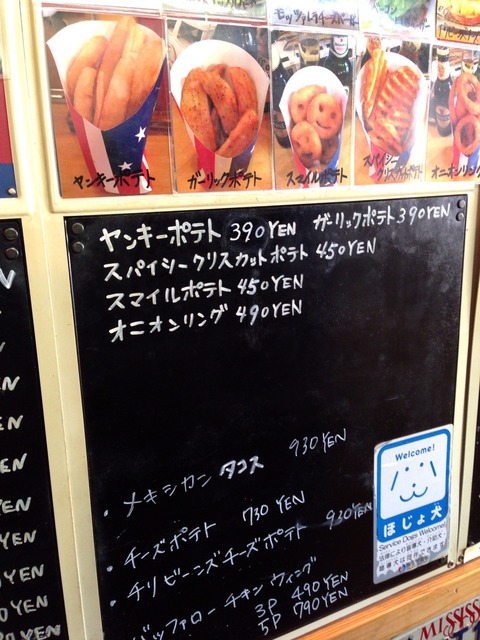 モッツァレラチーズバー
ヤンキーポテト
ガーリックポテト
スマイルポテト
スパイシー
クリスカットポテト
オニオンリング
ヤンキーポテト 390YEN ガーリックポテト 390YEN
スパイシークリスカットポテト 450YEN
スマイルポテト 450YEN
オニオンリング 490YEN
・メキシカン タコス 930YEN
・チーズポテト 730YEN
・チリビーンズチーズポテト 930YEN
・バッファローチキンウィング
3P 490YEN
5P 790YEN
Welcome!
ほじょ犬
Service Dogs Welcome!
MISSISS